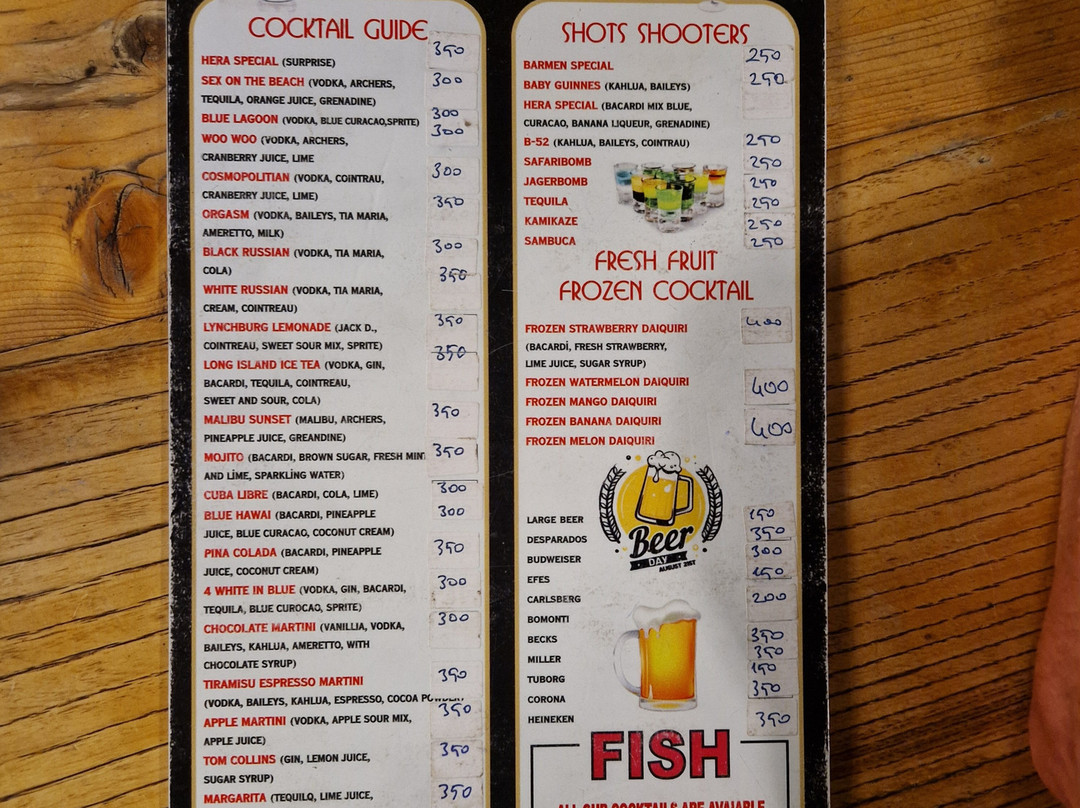 COCKTAIL GUIDE
350
HERA SPECIAL (SURPRISE)
SEX ON THE BEACH (VODKA, ARCHERS, 300
TEQUILA, ORANGE JUICE, GRENADINE)
BLUE LAGOON (VODKA, BLUE CURACAO,SPRITE) 300
WOO WOO (VODKA, ARCHERS, 300
CRANBERRY JUICE, LIME
COSMOPOLITIAN (VODKA, COİNTRAU, 300
CRANBERRY JUICE, LIME)
ORGASM (VODKA, BAILEYS, TIA MARIA, 350
AMERETTO, MILK)
BLACK RUSSIAN (VODKA, TIA MARIA, 300
COLA)
WHITE RUSSIAN (VODKA, TIA MARIA, 350
CREAM, COINTREAU)
LYNCHBURG LEMONADE (JACK D., 350
COINTREAU, SWEET SOUR MIX, SPRITE)
LONG ISLAND ICE TEA (VODKA, GIN, 350
BACARDI, TEQUILA, COINTREAU,
SWEET AND SOUR, COLA)
MALIBU SUNSET (MALIBU, ARCHERS, 350
PINEAPPLE JUICE, GREANDINE)
MOJITO (BACARDI, BROWN SUGAR, FRESH MINT 350
AND LİME, SPARKLİNG WATER)
CUBA LIBRE (BACARDI, COLA, LIME) 300
BLUE HAWAI (BACARDI, PINEAPPLE 300
JUICE, BLUE CURACAO, COCONUT CREAM)
PINA COLADA (BACARDI, PINEAPPLE 350
JUICE, COCONUT CREAM)
4 WHITE IN BLUE (VODKA, GIN, BACARDI, 300
TEQUILA, BLUE CUROCAO, SPRITE)
CHOCOLATE MARTINI (VANILLIA, VODKA, 300
BAILEYS, KAHLUA, AMERETTO, WITH
CHOCOLATE SYRUP)
TIRAMISU ESPRESSO MARTINI 350
(VODKA, BAILEYS, KAHLUA, ESPRESSO, COCOA POWDER)
APPLE MARTINI (VODKA, APPLE SOUR MIX, 350
APPLE JUICE)
TOM COLLINS (GIN, LEMON JUICE, 350
SUGAR SYRUP)
MARGARITA (TEQUILO, LIME JUICE, 350
SHOTS SHOOTERS
BARMEN SPECIAL 250
BABY GUINNES (KAHLUA, BAILEYS) 250
HERA SPECIAL (BACARDI MIX BLUE,
CURACAO, BANANA LIQUEUR, GRENADINE)
B-52 (KAHLUA, BAILEYS, COINTRAU) 250
SAFARIBOMB 250
JAGERBOMB 250
TEQUILA 250
KAMIKAZE 250
SAMBUCA 250
FRESH FRUIT
FROZEN COCKTAIL
FROZEN STRAWBERRY DAIQUIRI 400
(BACARDİ, FRESH STRAWBERRY,
LIME JUICE, SUGAR SYRUP)
FROZEN WATERMELON DAIQUIRI 400
FROZEN MANGO DAIQUIRI
FROZEN BANANA DAIQUIRI 400
FROZEN MELON DAIQUIRI
Beer
DAY
AUGUST 31ST
LARGE BEER 150
DESPARADOS 350
BUDWEISER 300
EFES 150
CARLSBERG 200
BOMONTI
BECKS 350
MILLER 350
TUBORG 150
CORONA 350
HEINEKEN 350
FISH
ALL OUR COCKTAILS ARE AVAIABLE